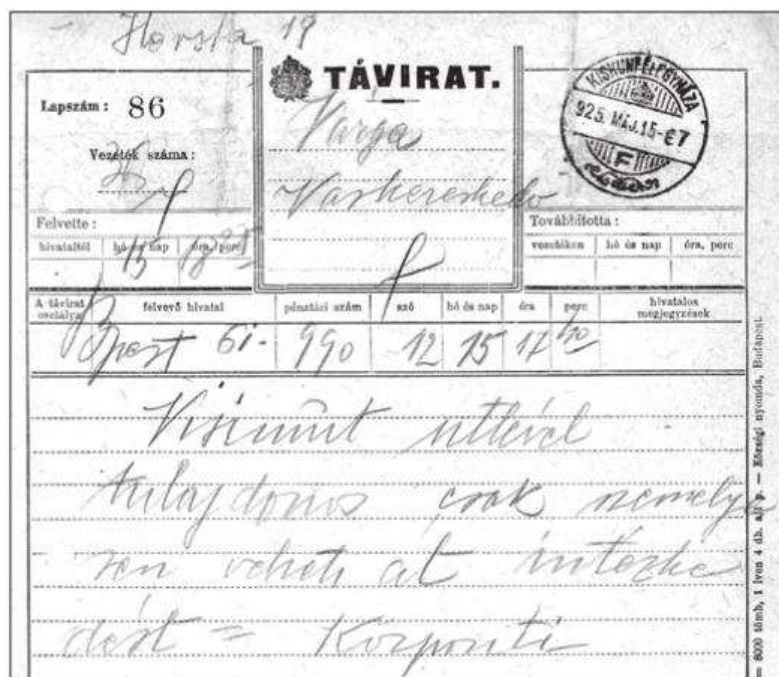 Horsta 19
TÁVIRAT.
Lapszám: 86
Vezeték száma:
Varga
Vaskereskedo
KISKUNFÉLEGYHÁZA
925 MÁJ.15-E7
F
Felvette:
hivataltól hó és nap óra, perc
15 18
Továbbította:
vezetéken hó és nap óra, perc
A távirat osztálya felvevő hivatal pénztári szám szó hó és nap óra perc hivatalos megjegyzések
Bpest 61. 990 12 15 17 40
útlevél
tulajdonos csak szemelye
sen veheti át intezke
dést = Központi
= 8000 tömb, 1 íven 4 db. — Községi nyomda, Budapest.